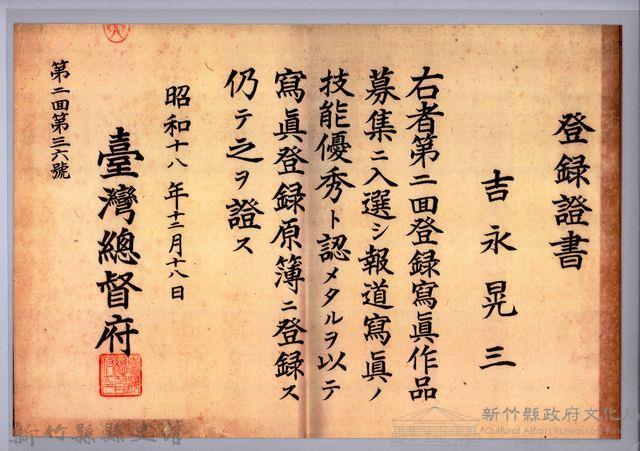 登錄證書
吉永晃三
右者第二回登錄寫眞作品
募集ニ入選シ報道寫眞ノ
技能優秀ト認メタルヲ以テ
寫眞登錄原簿ニ登錄ス
仍テ之ヲ證ス
昭和十八年十二月十八日
臺灣總督府
第二回第三六號
新竹縣縣史館
新竹縣政府文化局
Cultural Affairs Bureau of